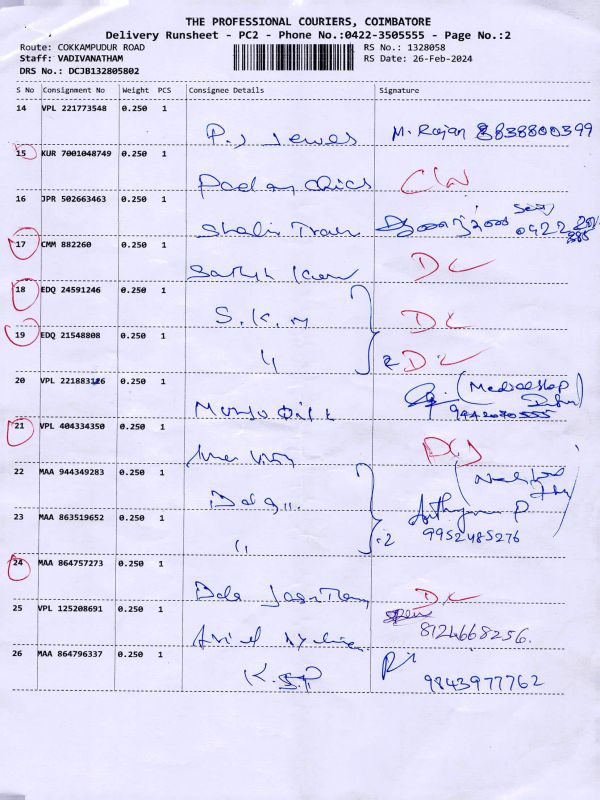 THE PROFESSIONAL COURIERS, COIMBATORE
Delivery Runsheet - PC2 - Phone No.:0422-3505555 - Page No.:2
Route: COKKAMPUDUR ROAD RS No.: 1328058
Staff: VADIVANATHAM RS Date: 26-Feb-2024
DRS No.: DCJB132805802
S No Consignment No Weight PCS Consignee Details Signature
14 VPL 221773548 0.250 1
P.J Jewes M. Rajan 8838800399
15 KUR 7001048749 0.250 1
16 JPR 502663463 0.250 1
0422
17 CMM 882260 0.250 1
DL
18 EDQ 24591246 0.250 1
S.K.M DL
19 EDQ 21548808 0.250 1
" DL
20 VPL 221883126 0.250 1
9942070555
21 VPL 404334350 0.250 1
22 MAA 944349283 0.250 1
23 MAA 863519652 0.250 1
" 9952485276
24 MAA 864757273 0.250 1
DL
25 VPL 125208691 0.250 1
8124668256.
26 MAA 864796337 0.250 1
9843977762